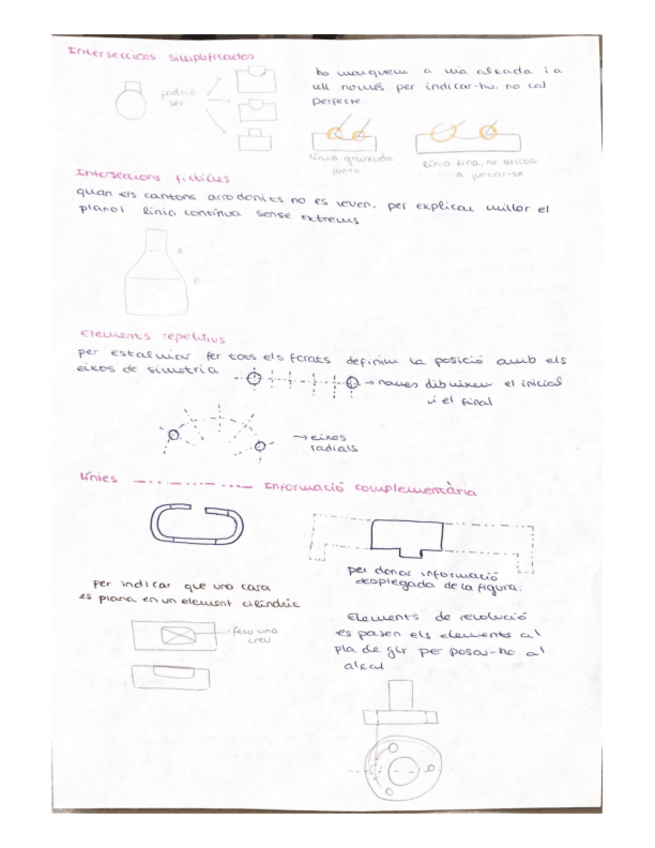 Interseccions simplificades
podria
ser
ho marquem a una alçada i a
ull només per indicar-ho. no cal
perfecte.
línia gruixuda
junta
línia fina, no arriba
a juntar-se
Interseccions fictícies
quan els cantons arrodonits no es veuen, per explicar millor el
plànol línia contínua sense extrems
A
B
Elements repetitius
per estalviar fer tots els forats definim la posició amb els
eixos de simetria
→ només dibuixem el inicial
i el final
→ eixos
radials
Línies
Informació complementària
per donar informació
desplegada de la figura.
Per indicar que una casa
és plana en un element cilíndric
fem una
creu
Elements de revolució
es pasen els elements al
pla de gir per posar-ho al
alçat